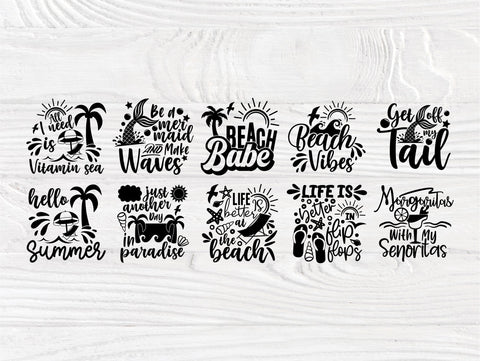 All I
need
is
Vitamin sea
Be a
mermaid
AND Make
Waves
BEACH
Babe
Beach
Vibes
Get off
my
Tail
hello
Summer
just
another
Day
in
paradise
LIFE IS
better
at
the
beach
LIFE IS
better
IN
flip
flops
Margaritas
With My
Señoritas